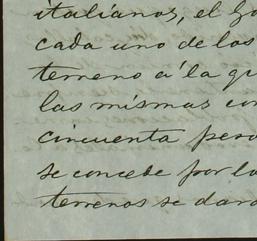 italianos, el Go
cada uno de los
terreno á la qu
las mismas con
cincuenta pero
se concede por la
terrenos se dará